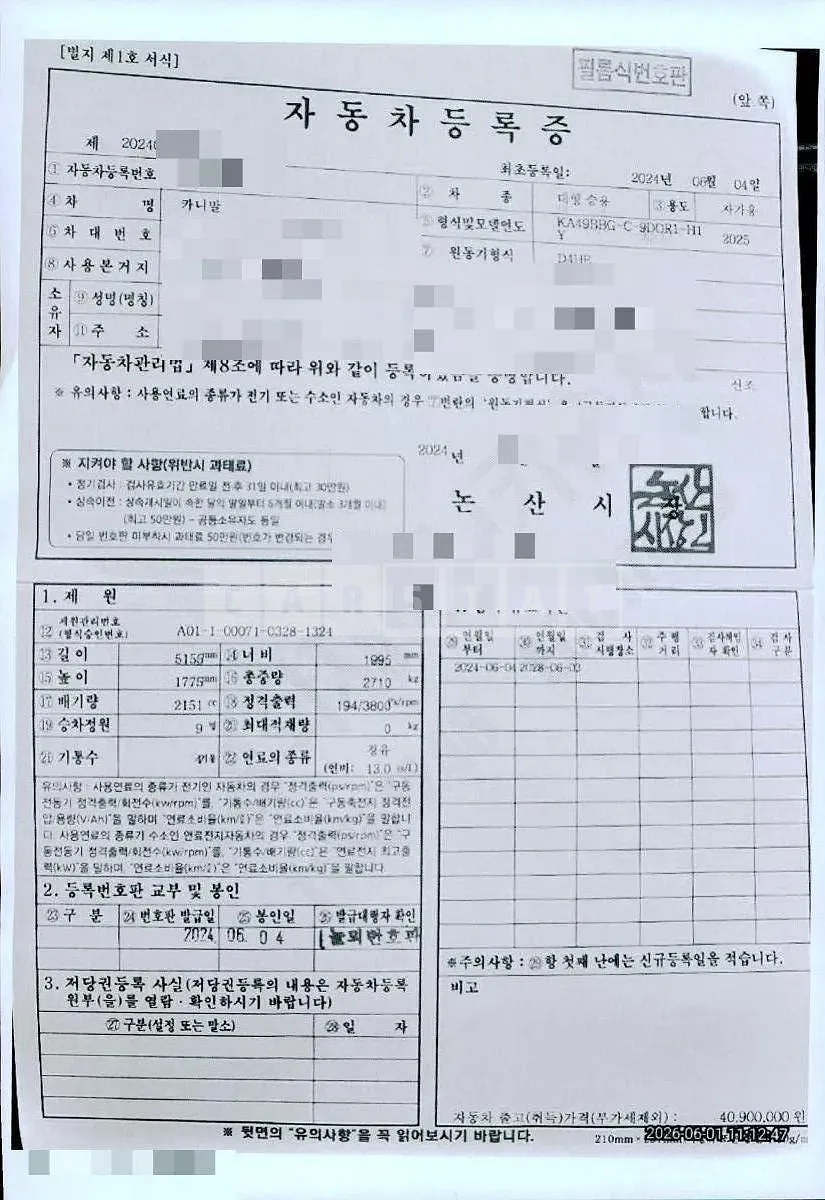 [별지 제1호 서식]
필름식번호판
(앞 쪽)
자 동 차 등 록 증
제 2024
최초등록일: 2024년 06월 04일
① 자동차등록번호
② 차 종 대형 승용 ③ 용도 자가용
④ 차 명 카니발
형식및모델연도 KA49BBG-C-9DGR1-H1
Y 2025
⑥ 차 대 번 호
⑦ 원동기형식 D4HE
⑧ 사 용 본 거 지
소유자 ⑨ 성명(명칭)
주 소
「자동차관리법」 제8조에 따라 위와 같이 등록하였음을 증명합니다.
신조
※ 유의사항 : 사용연료의 종류가 전기 또는 수소인 자동차의 경우
합니다.
2024 년
※ 지켜야 할 사항(위반시 과태료)
• 정기검사 : 검사유효기간 만료일 전·후 31일 이내(최고 30만원)
• 상속이전 : 상속개시일이 속한 달의 말일부터 6개월 이내(말소 3개월 이내)
(최고 50만원) - 공동소유자도 동일
• 당일 번호판 미부착시 과태료 50만원(번호가 변경되는 경우
논 산 시 장
CARSTAR
1. 제 원
⑫ 제원관리번호
(형식승인번호) A01-1-00071-0328-1324
⑬ 길 이 5155mm ⑭ 너 비 1995 mm
⑮ 높 이 1775mm ⑯ 총중량 2710 kg
⑰ 배기량 2151 cc ⑱ 정격출력 194/3800 ps/rpm
⑲ 승차정원 9 명 ⑳ 최대적재량 0 kg
㉑ 기통수 4기통 ㉒ 연료의 종류 경유
(연비: 13.0 ㎞/ℓ)
유의사항 : 사용연료의 종류가 전기인 자동차의 경우 "정격출력(ps/rpm)"은 "구동
전동기 정격출력/회전수(kw/rpm)"를, "기통수/배기량(cc)"은 "구동축전지 정격전
압/용량(V/Ah)"을 말하며 "연료소비율(km/ℓ)"은 "연료소비율(km/kg)"을 말합니
다. 사용연료의 종류가 수소인 연료전지자동차의 경우 "정격출력(ps/rpm)"은 "구
동전동기 정격출력/회전수(kw/rpm)"를, "기통수/배기량(cc)"은 "연료전지 최고출
력(kW)"을 말하며, "연료소비율(km/ℓ)"은 "연료소비율(km/kg)"을 말합니다.
2. 등록번호판 교부 및 봉인
㉓ 구 분 ㉔ 번호판 발급일 ㉕ 봉인일 ㉖ 발급대행자 확인
2024 06. 04
3. 저당권등록 사실(저당권등록의 내용은 자동차등록
원부(을)를 열람·확인하시기 바랍니다)
㉗ 구분(설정 또는 말소) ㉘ 일 자
㉙ 연월일 부터 ㉚ 연월일 까지 ㉛ 검 사 시행장소 ㉜ 주 행 거 리 ㉝ 검사책임자 확인 ㉞ 검 사 구분
2024-06-04 2028-06-03
※주의사항 : ㉙항 첫째 난에는 신규등록일을 적습니다.
비고
자동차 출고(취득)가격(부가세제외) : 40,900,000 원
※ 뒷면의 "유의사항"을 꼭 읽어보시기 바랍니다.
210mm
2026-06-01 11:12:47